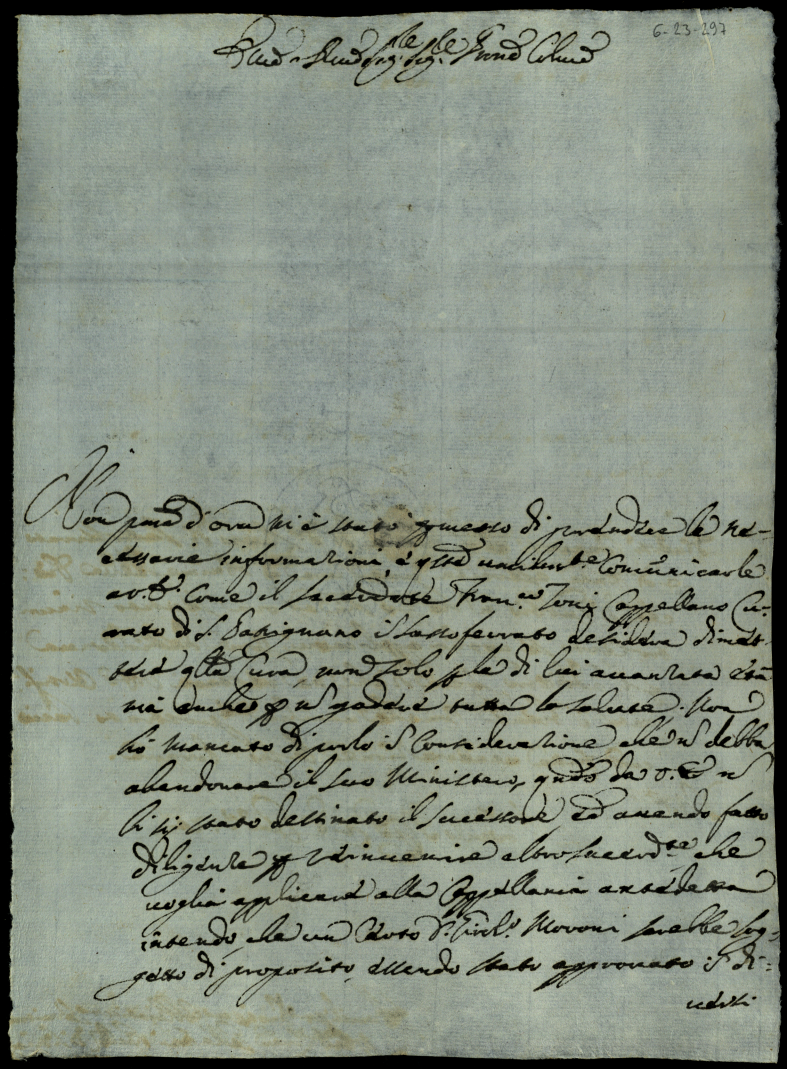 6-23-297
Emo e Rmo Sig.re Sig.re Prone Colmo
Non prima d'ora mi è stato permesso di prendere le ne-
cessarie informazioni, e qsta umilm.te comunicarle
a V.E. come il sacerdote Fran.co Toni Cappellano Cu-
rato di S. Passignano i Sassoferrato desidera dimet-
tere qlla Cura, non solo p le di lui avanzata età
ma anche p n godere tutta la salute. Non
hò mancato di porlo i considerazione che n debba
abandonare il suo Ministero, qndo da V.E. n
li sij stato destinato il sucessore, ed avendo fatto
diligenze p rinvenire altro sacerd.te che
voglia applicare alla Cappellania antedetta
intendo, che un certo D. Girol.o Moroni sarebbe sog-
getto di proposito, essendo stato approvato i di-
versi